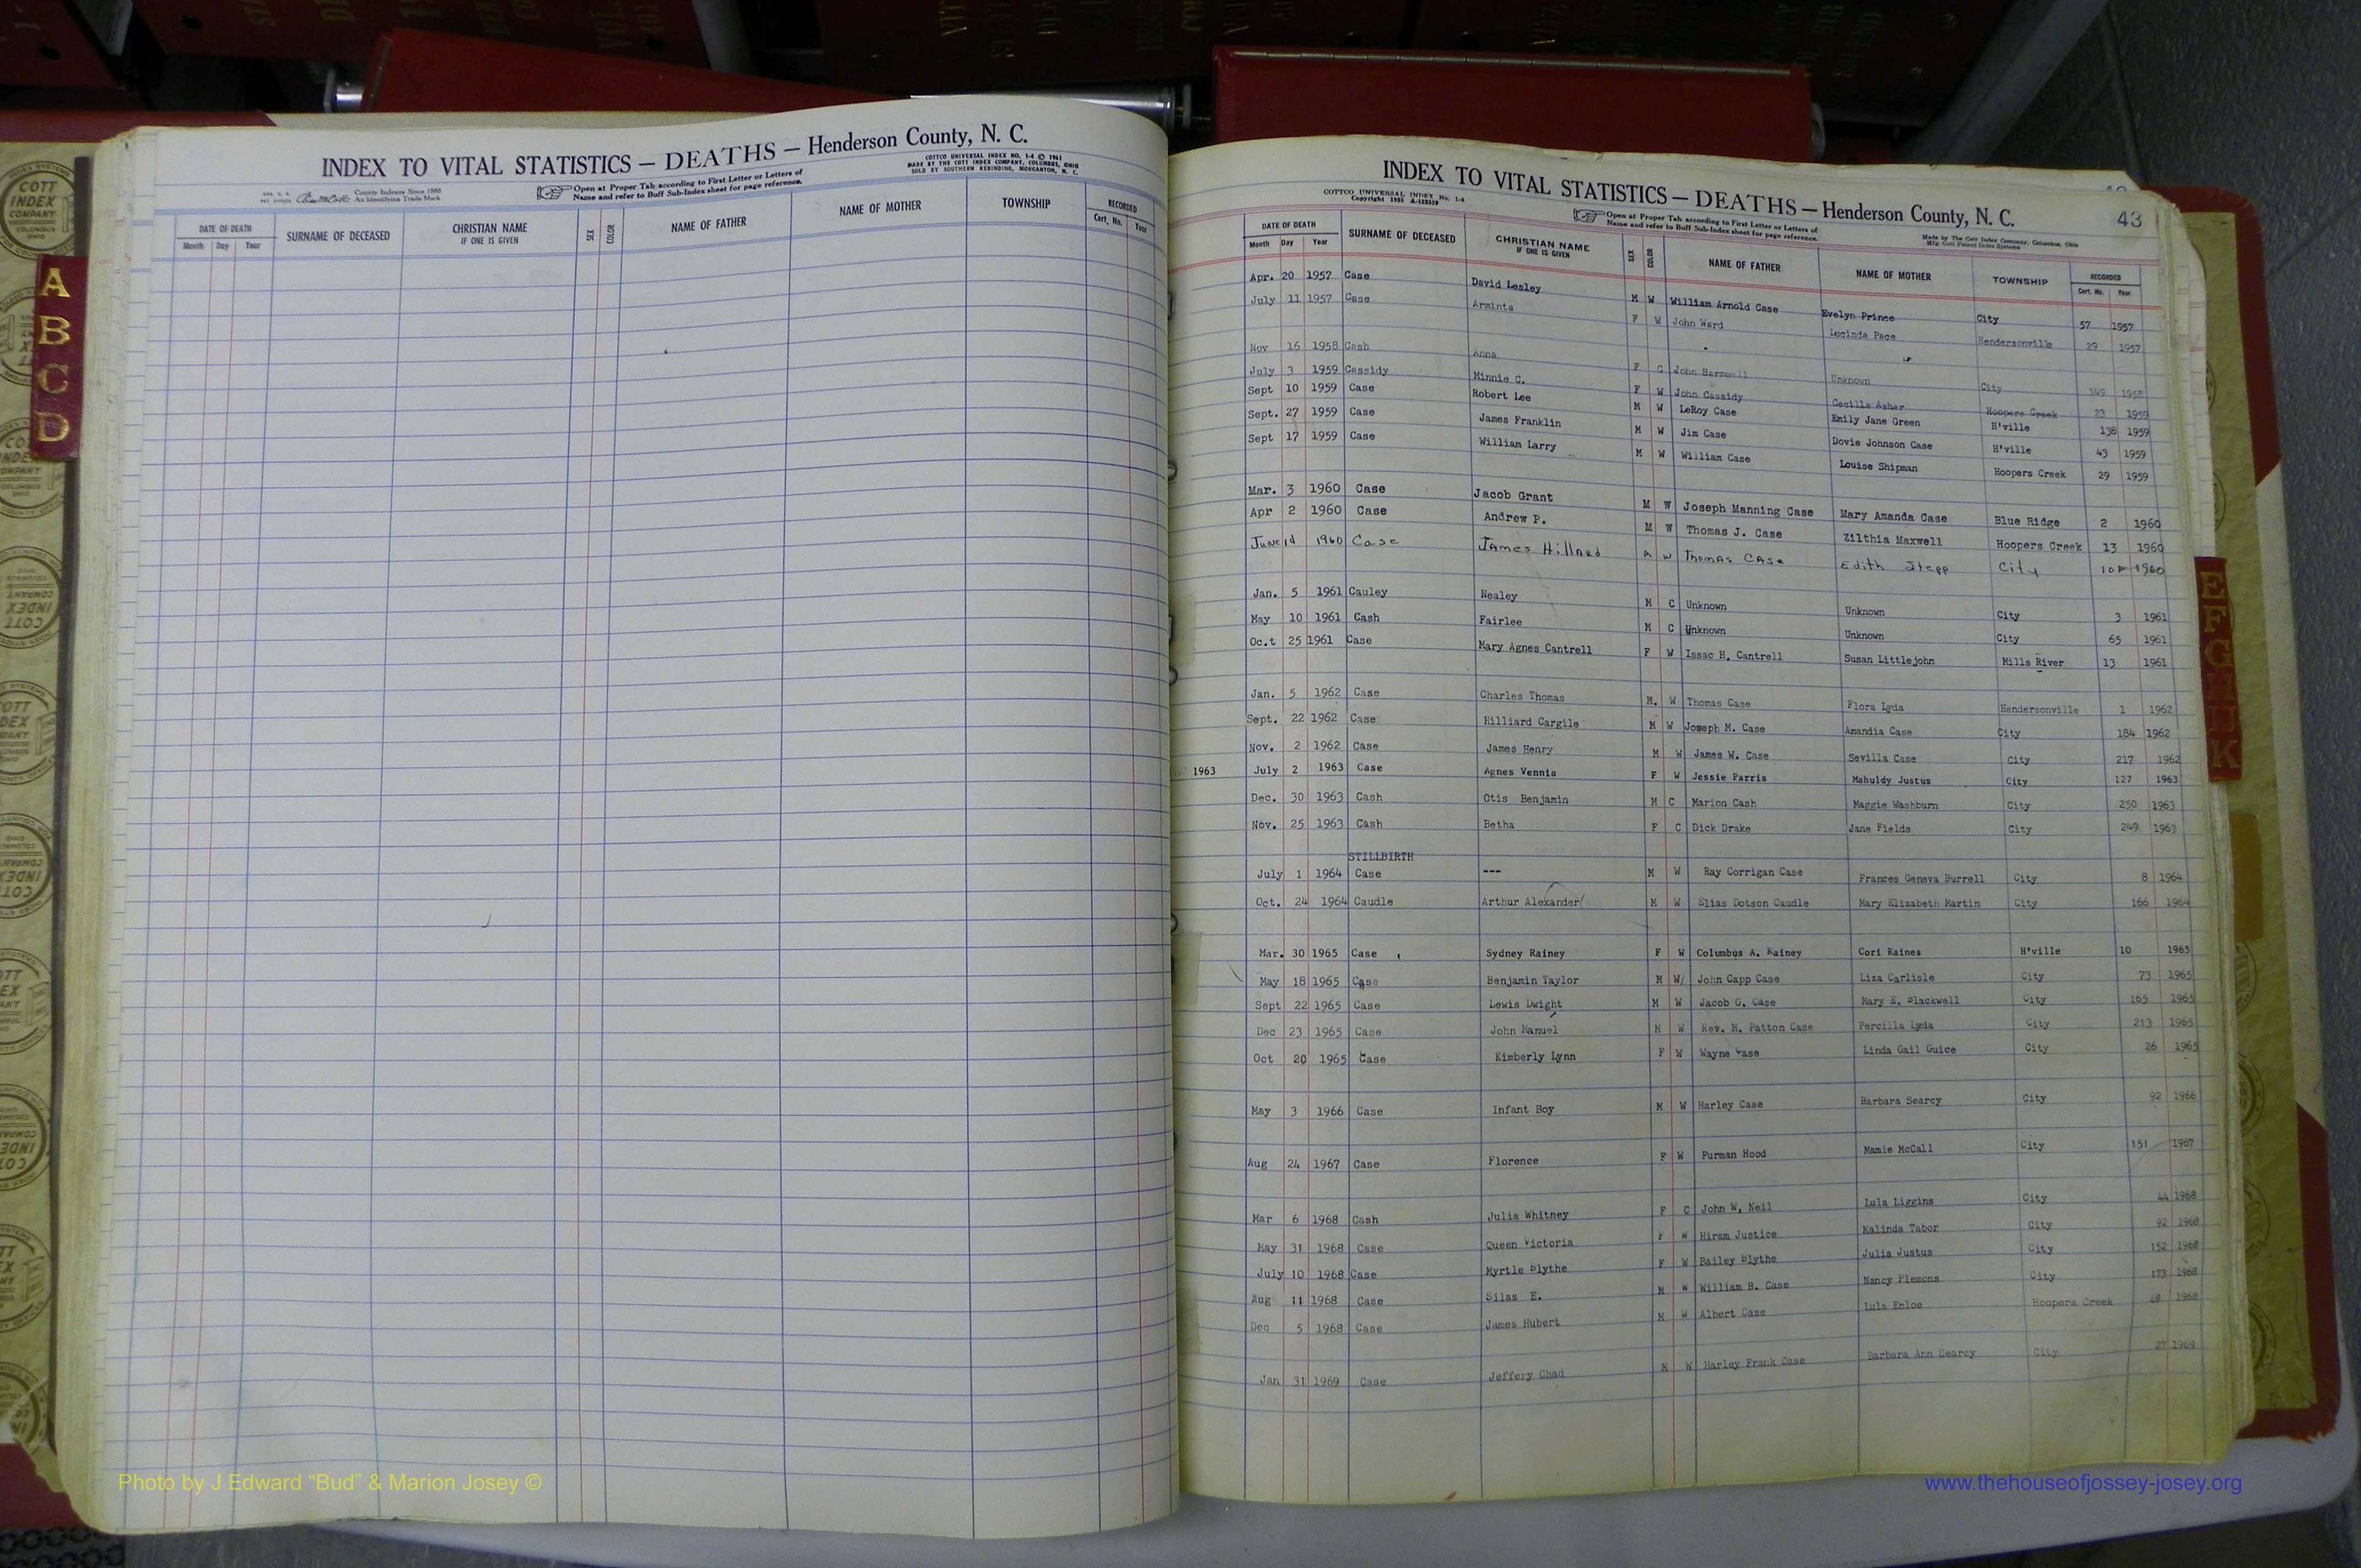 INDEX TO VITAL STATISTICS — DEATHS — Henderson County, N. C.
COTTCO UNIVERSAL INDEX NO. 1-4 © 1961
MADE BY THE COTT INDEX COMPANY, COLUMBUS, OHIO
SOLD BY SOUTHERN REBINDING, MORGANTON, N. C.
County Indexes Since 1888
An Identifying Trade Mark
Open at Proper Tab according to First Letter or Letters of
Name and refer to Buff Sub-Index sheet for page reference.
DATE OF DEATH SURNAME OF DECEASED CHRISTIAN NAME IF ONE IS GIVEN SEX COLOR NAME OF FATHER NAME OF MOTHER TOWNSHIP RECORDED
Month Day Year Cert. No. Year
A
B
C
D
COTT
INDEX
COMPANY
INDEX TO VITAL STATISTICS — DEATHS — Henderson County, N. C. 43
COTTCO UNIVERSAL INDEX No. 1-4
Open at Proper Tab according to First Letter or Letters of
Name and refer to Buff Sub-Index sheet for page reference.
Made by The Cott Index Company, Columbus, Ohio
DATE OF DEATH SURNAME OF DECEASED CHRISTIAN NAME IF ONE IS GIVEN SEX COLOR NAME OF FATHER NAME OF MOTHER TOWNSHIP RECORDED
Month Day Year Cert. No. Year
Apr. 20 1957 Case David Lesley M W William Arnold Case Evelyn Prince City 57 1957
July 11 1957 Case Arminta F W John Ward Lucinda Pace Hendersonville 29 1957
Nov 16 1958 Cash Anna F C John Barnwell Unknown City 149 1958
July 3 1959 Cassidy Minnie C. F W John Cassidy Cecilla Asher Hoopers Creek 23 1959
Sept 10 1959 Case Robert Lee M W LeRoy Case Emily Jane Green H'ville 138 1959
Sept. 27 1959 Case James Franklin M W Jim Case Dovie Johnson Case H'ville 43 1959
Sept 17 1959 Case William Larry M W William Case Louise Shipman Hoopers Creek 29 1959
Mar. 3 1960 Case Jacob Grant M W Joseph Manning Case Mary Amanda Case Blue Ridge 2 1960
Apr 2 1960 Case Andrew P. M W Thomas J. Case Zilthia Maxwell Hoopers Creek 13 1960
June 1960 Case James Hillard M W Thomas Case Edith Stepp City 1960
Jan. 5 1961 Cauley Nealey M C Unknown Unknown City 3 1961
May 10 1961 Cash Fairlee M C Unknown Unknown City 65 1961
Oc.t 25 1961 Case Mary Agnes Cantrell F W Issac H. Cantrell Susan Littlejohn Mills River 13 1961
Jan. 5 1962 Case Charles Thomas M. W Thomas Case Flora Lyda Hendersonville 1 1962
Sept. 22 1962 Case Hilliard Cargile M W Joseph M. Case Amandia Case City 184 1962
Nov. 2 1962 Case James Henry M W James W. Case Sevilla Case City 217 1962
1963 July 2 1963 Case Agnes Vennia F W Jessie Parris Mahuldy Justus City 127 1963
Dec. 30 1963 Cash Otis Benjamin M C Marion Cash Maggie Washburn City 250 1963
Nov. 25 1963 Cash Betha F C Dick Drake Jane Fields City 249 1963
STILLBIRTH
July 1 1964 Case --- M W Ray Corrigan Case Frances Geneva Burrell City 8 1964
Oct. 24 1964 Caudle Arthur Alexander M W Elias Dotson Caudle Mary Elizabeth Martin City 166 1964
Mar. 30 1965 Case Sydney Rainey F W Columbus A. Rainey Cori Raines H'ville 10 1965
May 18 1965 Case Benjamin Taylor M W/ John Capp Case Liza Carlisle City 73 1965
Sept 22 1965 Case Lewis Dwight M W Jacob G. Case Mary E. Blackwell City 165 1965
Dec 23 1965 Case John Manuel M W Rev. M. Patton Case Percilla Lyda City 213 1965
Oct 20 1965 Case Kimberly Lynn F W Wayne Case Linda Gail Guice City 26 1965
May 3 1966 Case Infant Boy M W Harley Case Barbara Searcy City 92 1966
Aug 24 1967 Case Florence F W Furman Hood Mamie McCall City 151 1967
Mar 6 1968 Cash Julia Whitney F C John W. Neil Lula Liggins City 44 1968
May 31 1968 Case Queen Victoria F W Hiram Justice Malinda Tabor City 92 1968
July 10 1968 Case Myrtle Blythe F W Bailey Blythe Julia Justus City 152 1968
Aug 11 1968 Case Silas E. M W William B. Case Nancy Plemons City 173 1968
Dec 5 1968 Case James Hubert M W Albert Case Lula Enloe Hoopers Creek 48 1968
Jan 31 1969 Case Jeffery Chad M W Harley Frank Case Barbara Ann Searcy City 27 1969
E
F
G
K
Photo by J Edward “Bud” & Marion Josey ©
www.thehouseofjossey-josey.org